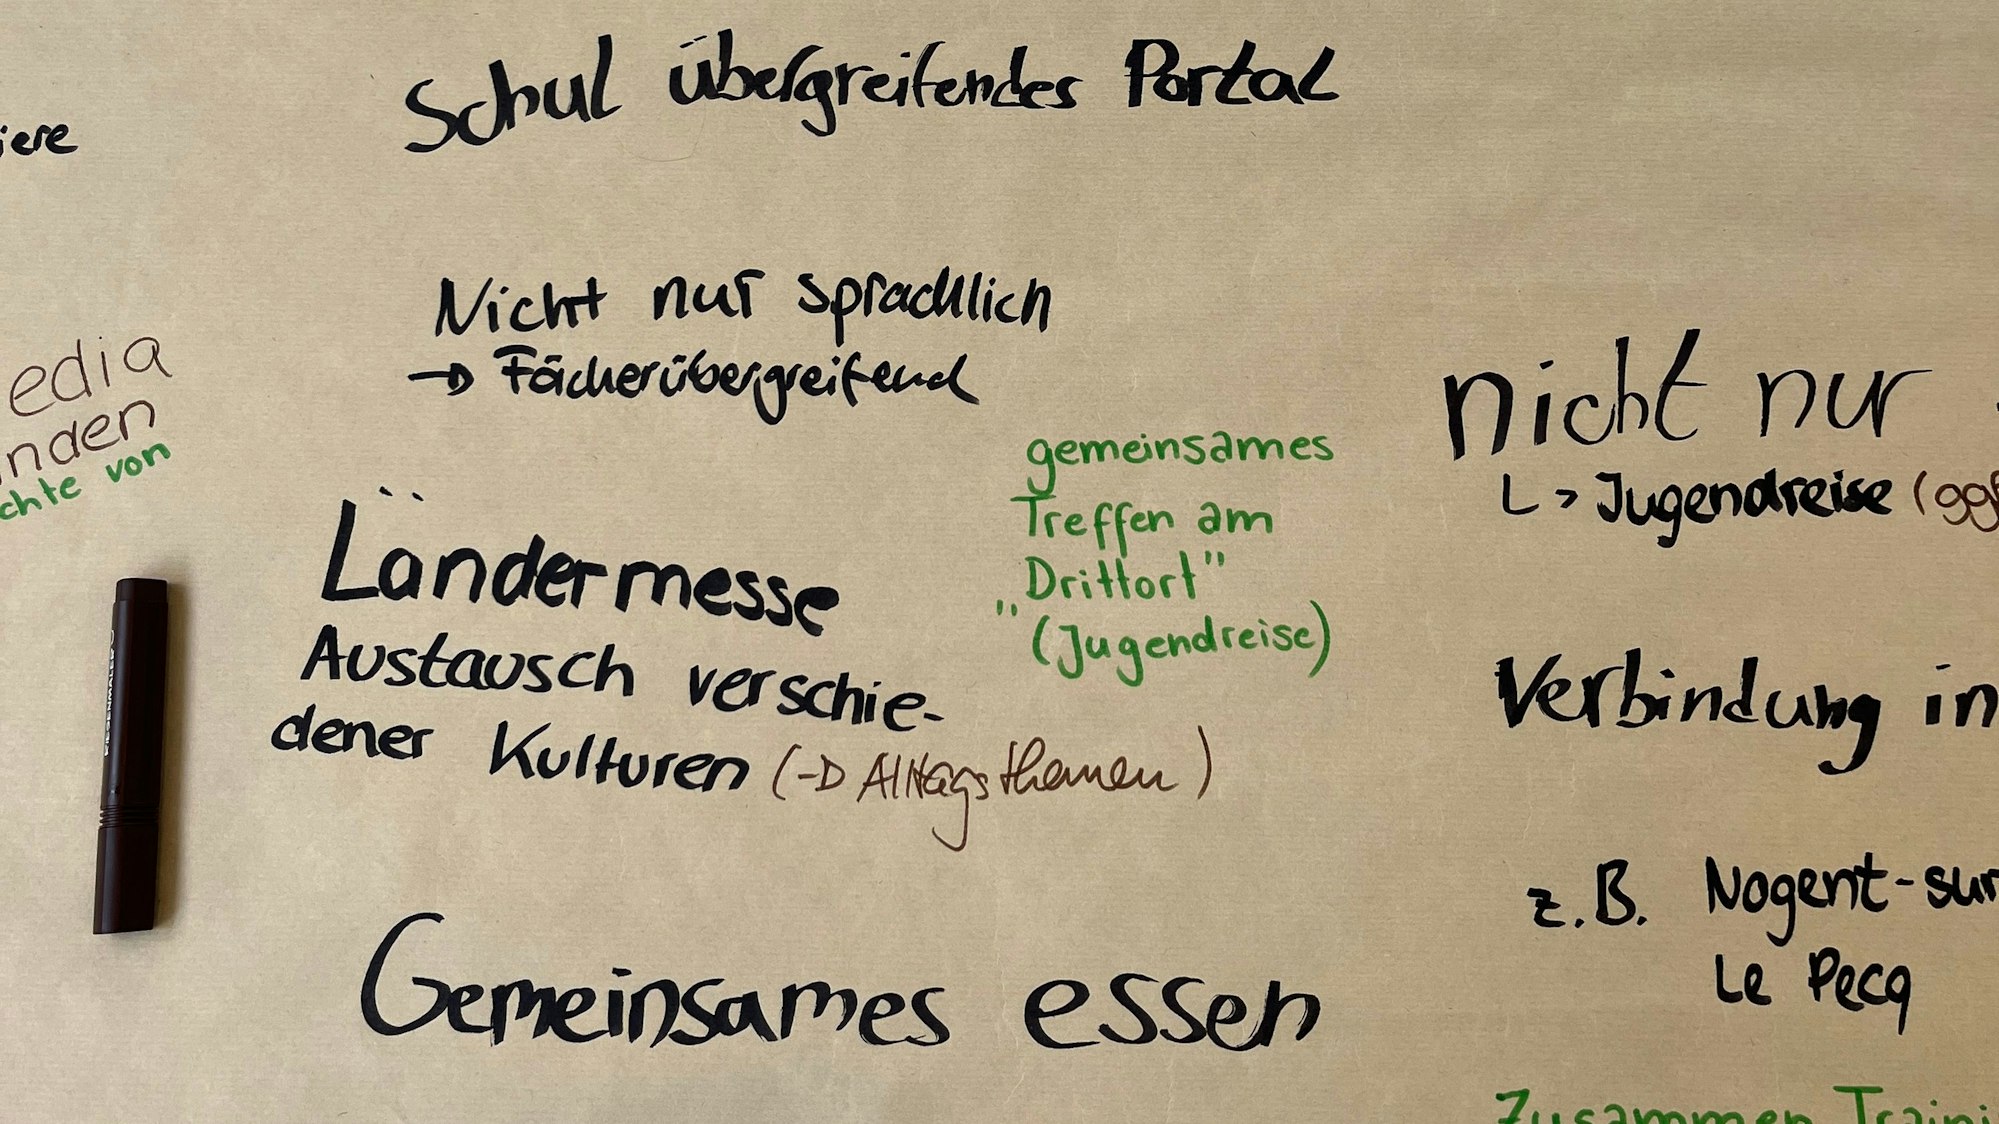 Schul übergreifendes Portal
iere
Nicht nur sprachlich
→ Fächerübergreifend
edia
nden
chte von
nicht nur
L> Jugendreise (ggf
gemeinsames
Treffen am
Drittort"
"(Jugendreise)
Ländermesse
Austausch verschie-
dener Kulturen (→ Alltagsthemen)
Verbindung in
z.B. Nogent-sur
Le Pecq
Gemeinsames essen
Zusammen Traini